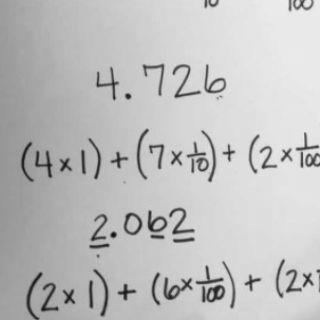 10 100
4.726
(4×1) + (7×1/10) + (2×1/100
2.062
(2×1) + (6×1/100) + (2×